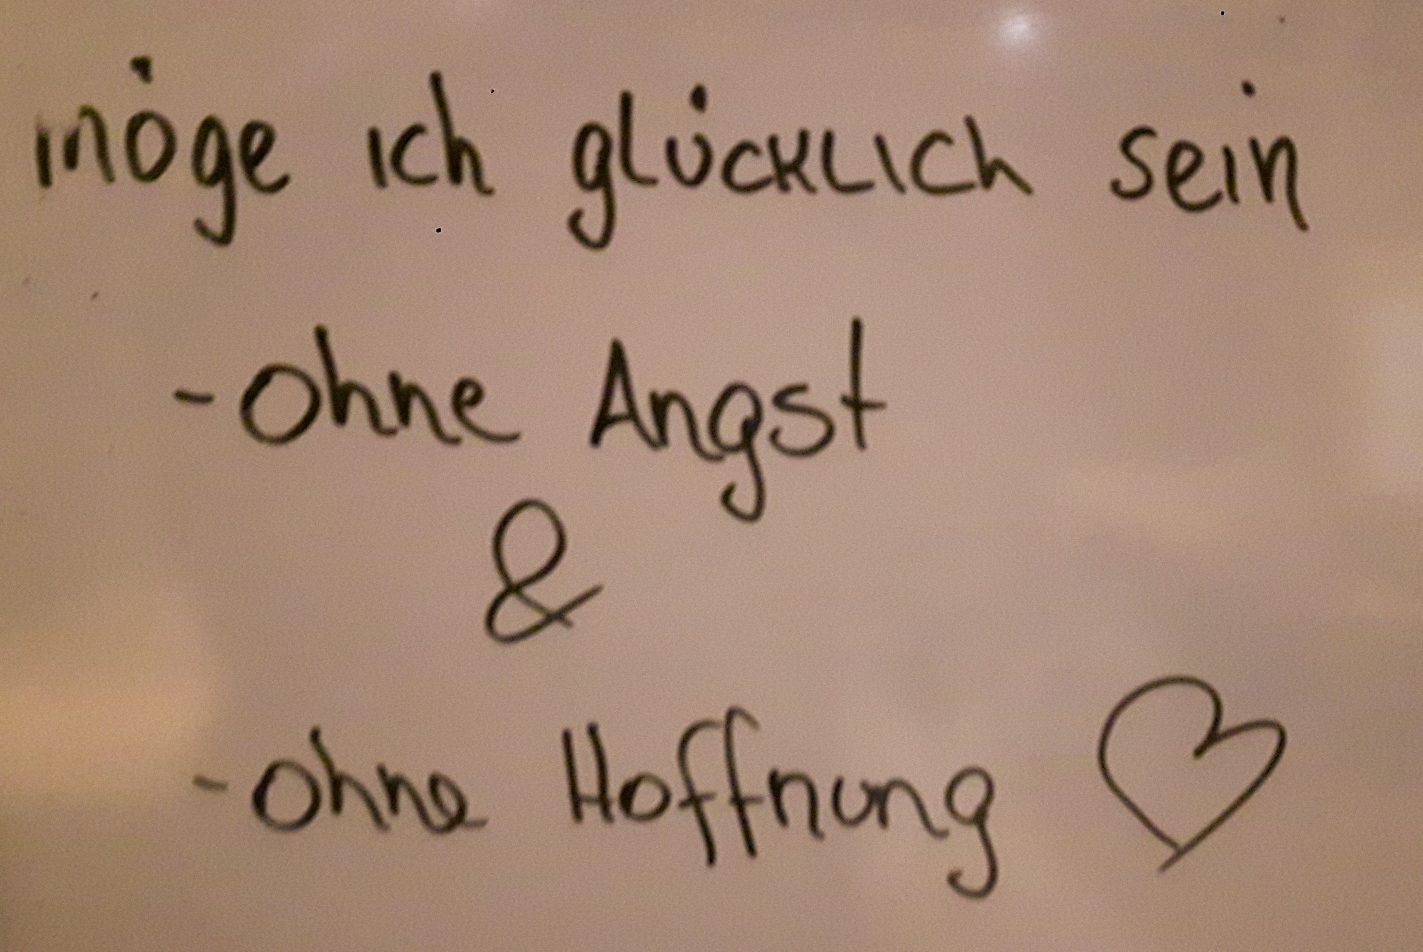 möge ich glücklich sein
- ohne Angst
&
- ohne Hoffnung